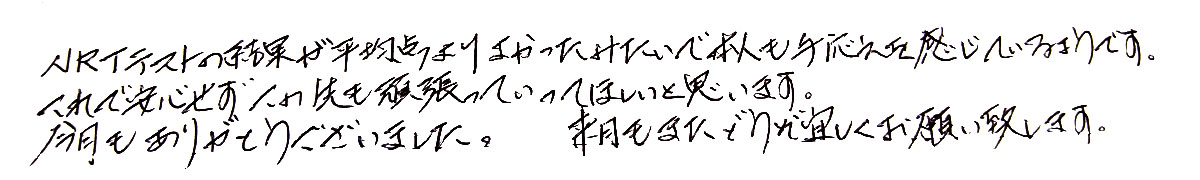 NRTテストの結果が平均点よりよかったみたいで本人も手応えを感じているようです。
これで安心せずこの先も頑張っていってほしいと思います。
今月もありがとうございました。 来月もまたどうぞ宜しくお願い致します。